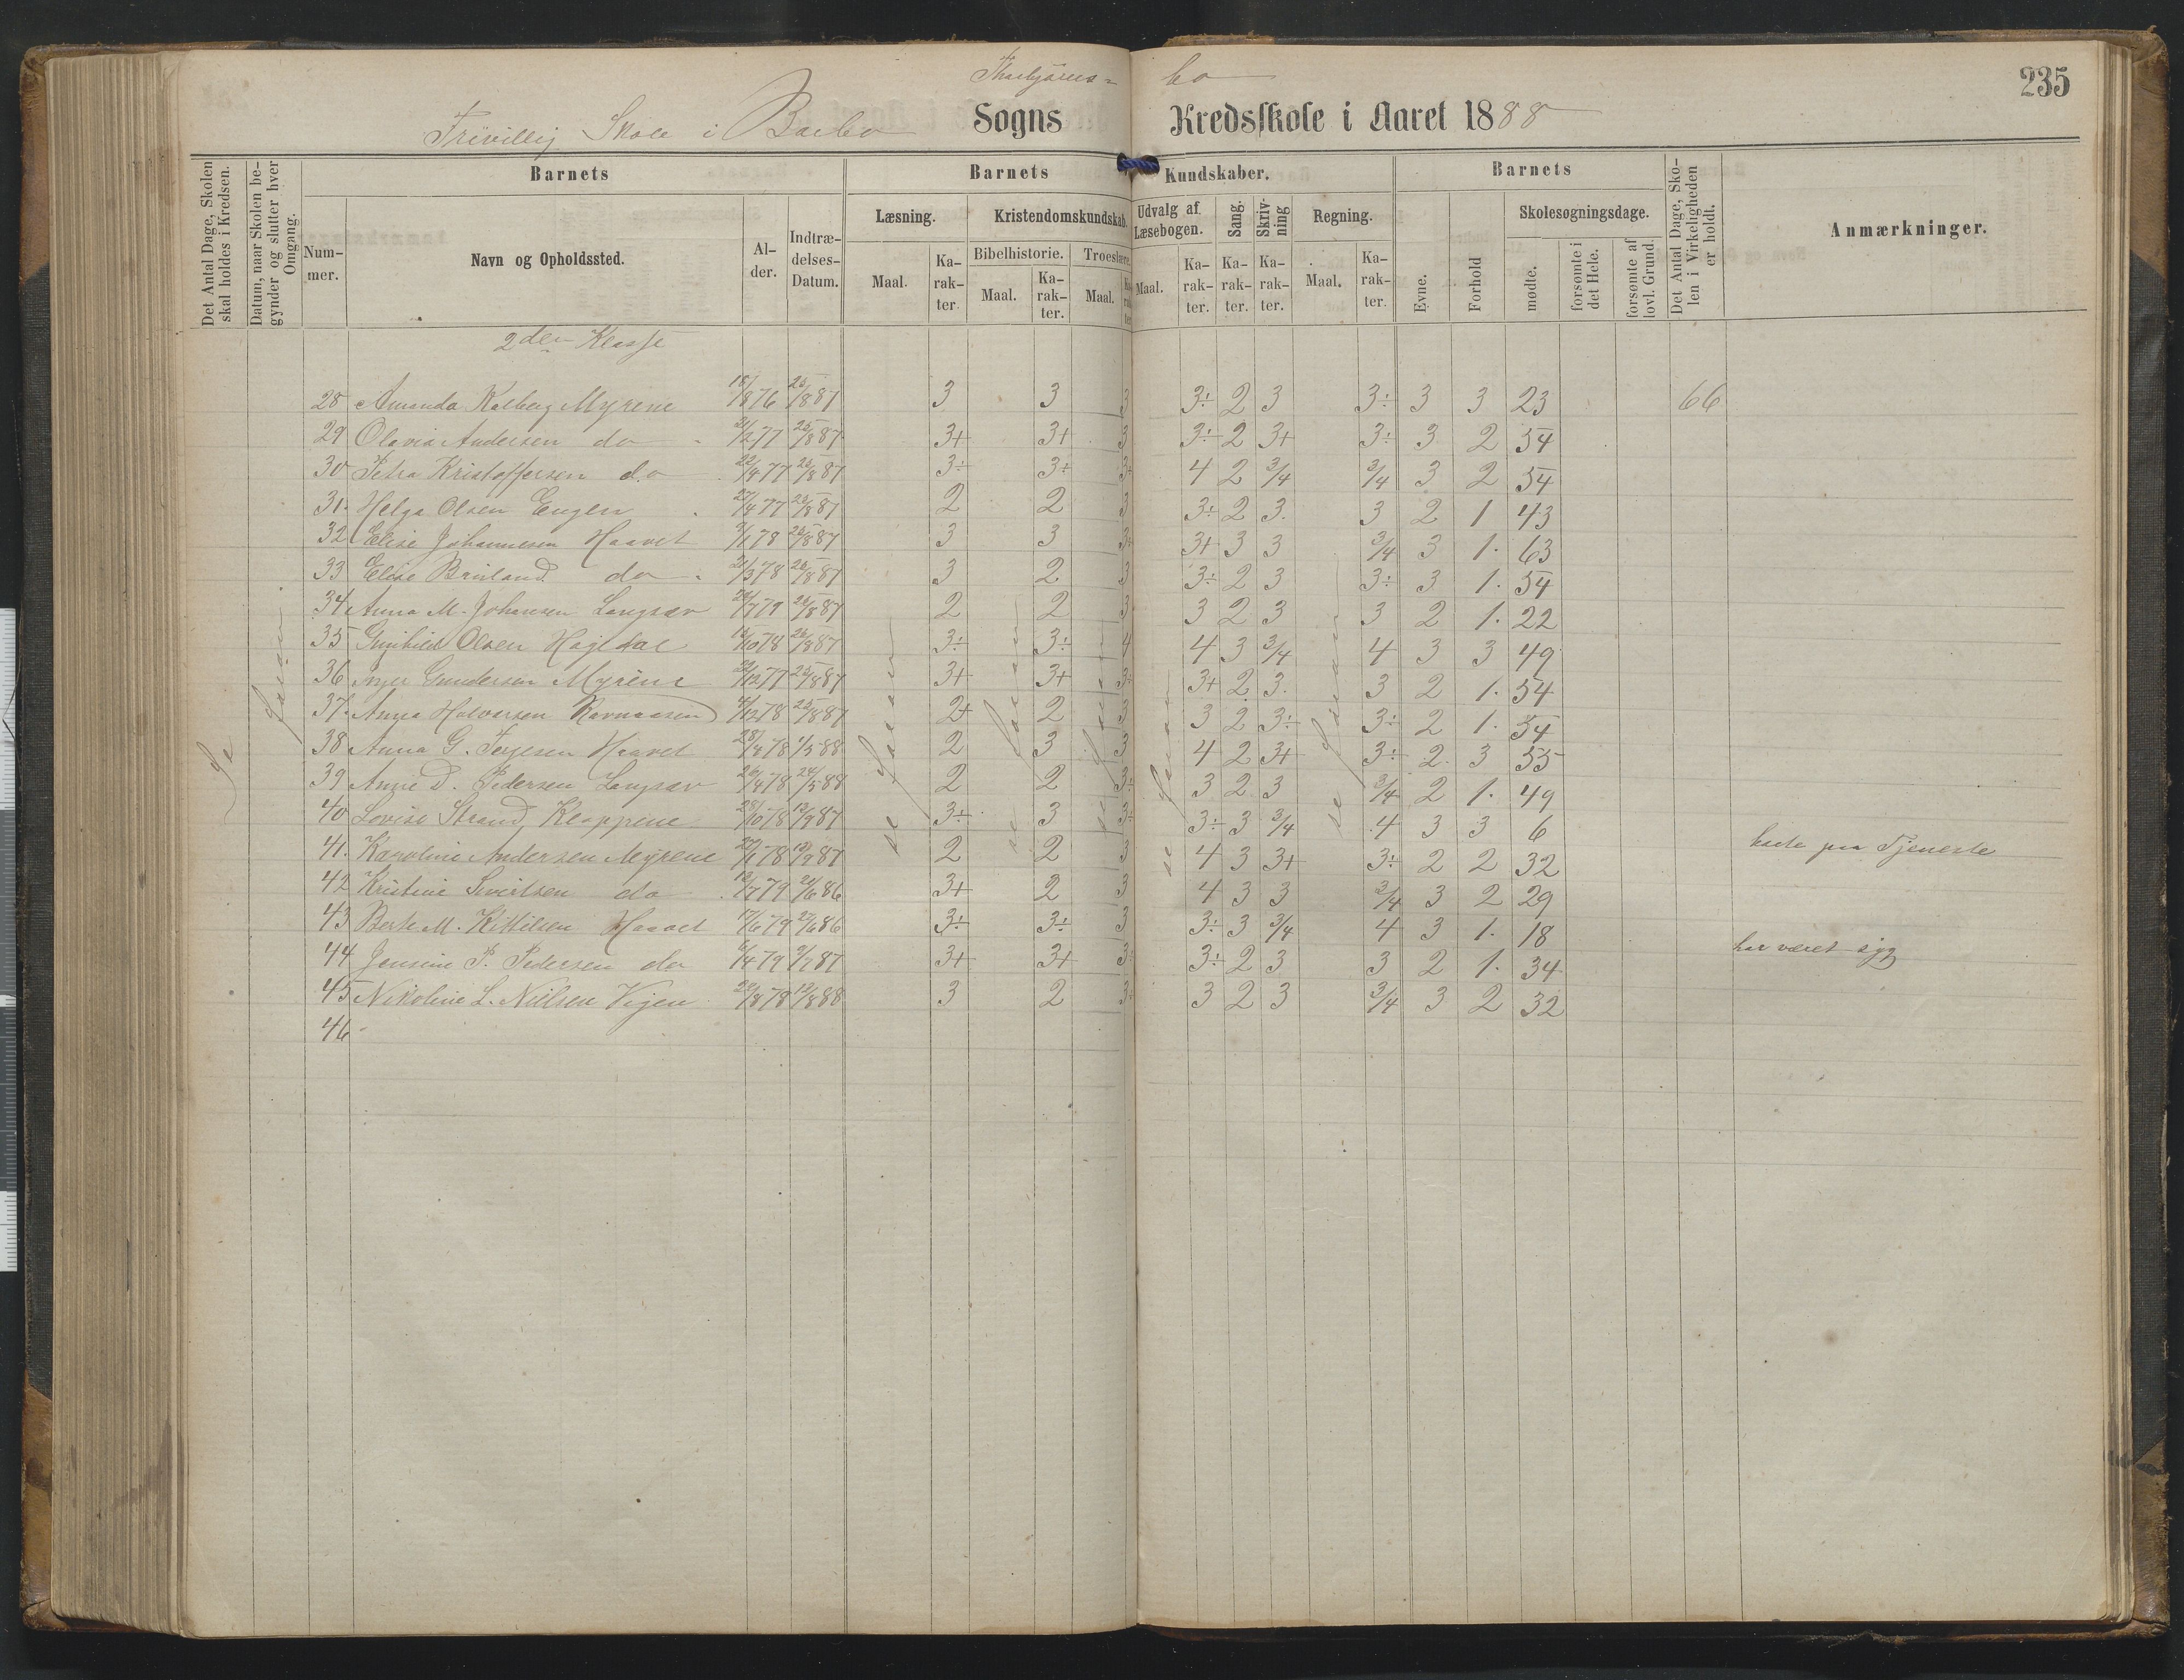 235
Frivillig Skole i Barbo Sogns Thorbjörns= bo Kredsskole i Aaret 1888
Det Antal Dage, Skolen skal holdes i Kredsen.
Datum, naar Skolen begynder og slutter hver Omgang.
Barnets
Nummer.
Navn og Opholdssted.
Alder.
Indtrædelses-Datum.
Barnets Kundskaber.
Læsning.
Maal.
Karakter
Kristendomskundskab.
Bibelhistorie.
Maal.
Karakter.
Troeslære.
Maal.
Udvalg af Læsebogen.
Maal.
Karakter.
Sang.
Karakter.
Skrivning
Karakter.
Regning.
Maal.
Karakter.
Barnets
Evne.
Forhold
Skolesøgningsdage.
mødte.
forsømte i det Hele.
forsømte af lovl. Grund.
Det Antal Dage, Skolen i Virkeligheden er holdt.
Anmærkninger.
2den Klasse
28 Amanda Kalberg Myrene 18/ 876 25/887 3 3 3 3÷ 2 3 3÷ 3 3 23 66
29 Olavia Andersen do 21/277 25/887 3+ 3+ 3 3÷ 2 3+ 3÷ 3 2 54
30 Petra Kristoffersen do 22/477 25/887 3÷ 3÷ 3÷ 4 2 3/4 3/4 3 2 54
31. Helga Olsen Engen 27/477 25/887 2 2 3 3÷ 2 3. 3 2 1 43
32 Elise Johannesen Haavet 9/178 25/887 3 3 3+ 3+ 3 3 3/4 3 1. 63
33 Elise Briland do 21/378 25/887 3 2 3 3÷ 2 3 3÷ 3 1. 54
34 Anna M. Johansen Langsæv 26/779 25/887 2 2 3 3 2 3 3 2 1. 22
35 Gunhild Olsen Högedal 15/1078 25/887 3÷ 3÷ 4 4 3 3/4 4 3 3 49
36 Inger Gundersen Myrene 22/1277 25/887 3+ 3+ 3+ 3+ 2 3. 3 2 1. 54
37. Anna Halvorsen Ravnaasen 4/1278 25/887 2+ 2 3 3 2 3÷ 3÷ 2 1. 54
38 Anna G. Terjesen Haavet 28/478 1/588 2 3 3 4 2 3+ 3÷ 2. 3 55
39 Anne D. Pedersen Langsæv 26/478 24/588 2 2 3÷ 3 2 3 3/4 2 1. 49
40 Lovise Strand, Kloppene 28/1078 12/987 3÷ 3 3÷ 3÷ 3 3/4 4 3 3 6
41. Karoline Andersen Myrene 27/178 19/987 2 2 3 4 3 3+ 3÷ 2 2 32 borte paa Tjeneste
42 Kristine Sivertsen do 12/779 21/686 3+ 2 3 4 3 3 3/4 3 2 29
43 Berte M. Kittilsen Haavet 17/679 22/686 3÷ 3÷ 3 3÷ 3 3/4 4 3 1. 18
44 Jensine P. Pedersen do 6/479 9/787 3+ 3+ 3÷ 3÷ 2 3 3 2 1. 34 har været syg
45 Nikoline L. Nielsen Vejen 22/878 12/888 3 2 3÷ 3 2 3 3/4 3 2 32
46
Se foran.
se foran
se foran
se foran
se foran
se foran